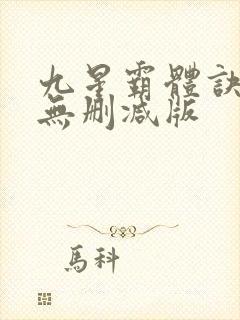 九星霸體訣
無刪減版
馬科